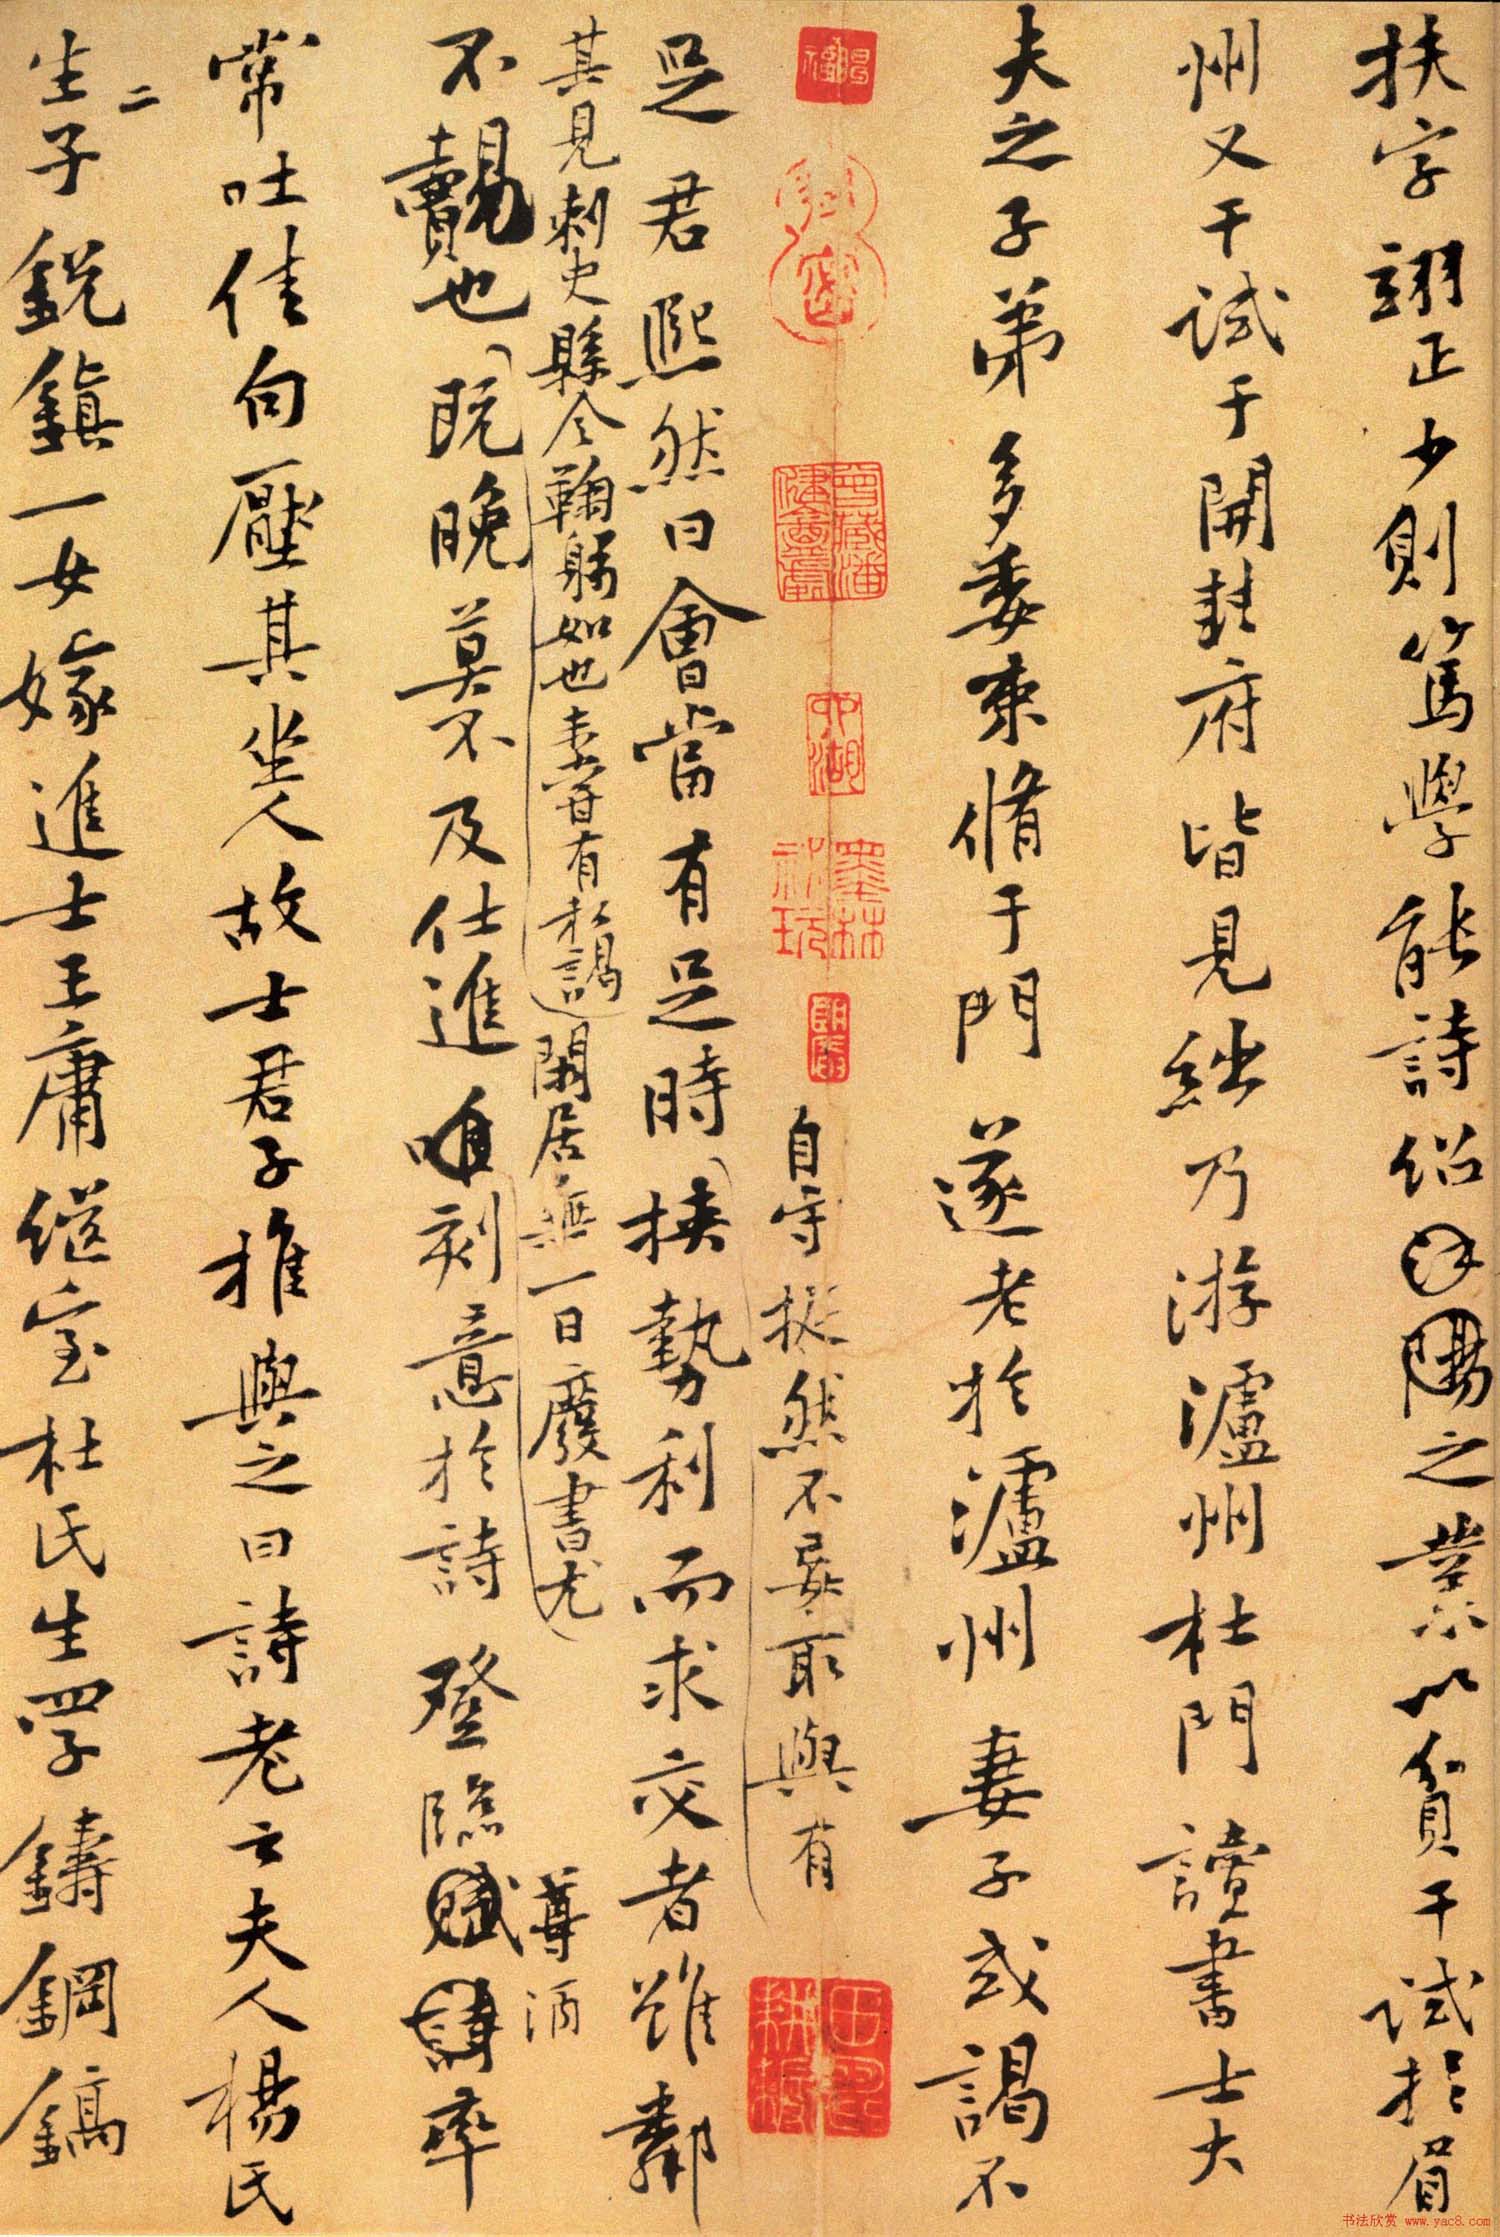 扶字翊正少則篤學能詩紹陽之業以貧干試於眉
州又干試于開封府皆見絀乃游瀘州杜門讀書士大
夫之子弟多委束脩于門遂老於瀘州妻子或謁不
自守挺然不妄取與有
足君熙然曰會當有足時挾勢利而求交者雖鄰
其見刺史縣令鞠躬如也未嘗有私謁閑居無一日廢書尤
尊酒
不覿也既晚莫不及仕進唯刻意於詩登臨賦詩率
常吐佳句壓其坐人故士君子推與之曰詩老云夫人楊氏
生二子銳鎮一女嫁進士王庸繼室杜氏生四子鑄鋼鎬
墨林祕玩
书法欣赏
www.yac8.com